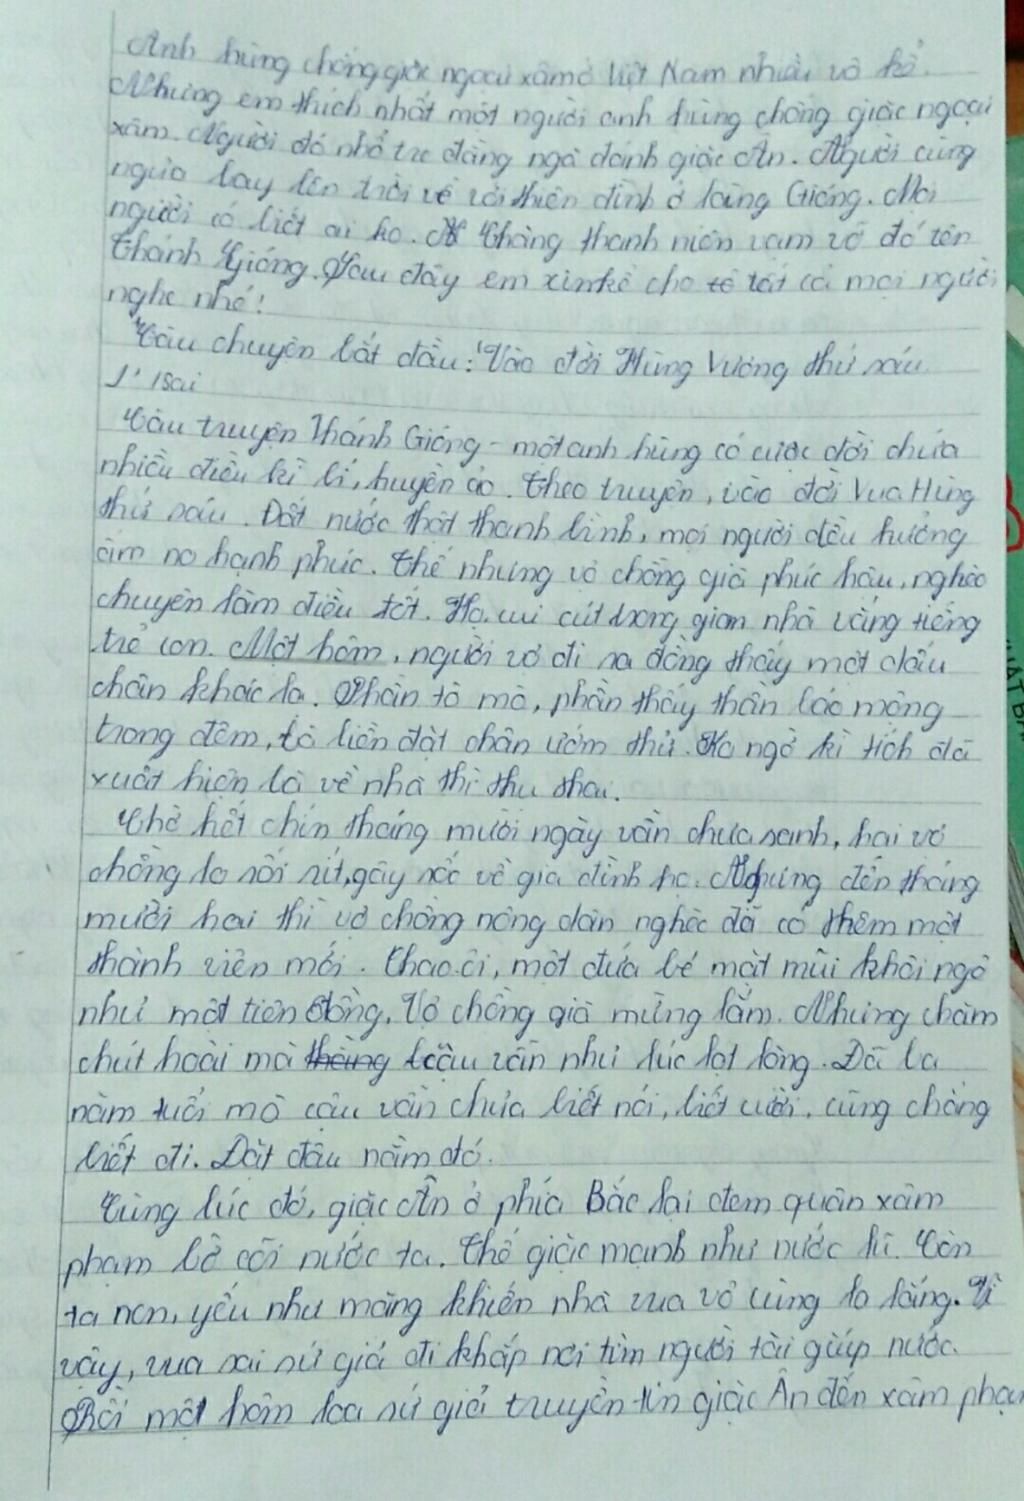 Anh hùng chống giặc ngoại xâm ở Việt Nam nhiều vô kể.
Nhưng em thích nhất một người anh hùng chống giặc ngoại
xâm. Người đó nhổ tre đằng ngà đánh giặc Ân. Người cùng
ngựa bay lên trời về với thiên đình ở làng Gióng. Mọi
người có biết ai ko. Chàng thanh niên vạm vỡ đó tên
Thánh Gióng. Sau đây em xin kể cho tất cả mọi người
nghe nhé!
Câu chuyện bắt đầu: "Vào đời Hùng Vương thứ sáu
sai
Câu truyện Thánh Gióng - một anh hùng có cuộc đời chứa
nhiều điều kì bí, huyền ảo. Theo truyện, vào đời Vua Hùng
thứ sáu. Đất nước thật thanh bình, mọi người đều hưởng
ấm no hạnh phúc. Thế nhưng vợ chồng già phúc hậu, nghèo
chuyên làm điều tốt. Họ cui cút trong gian nhà vắng tiếng
trẻ con. Một hôm, người vợ đi ra đồng thấy một dấu
chân khác lạ. Phần tò mò, phần thấy thần báo mộng
trong đêm, bà liền đặt chân ướm thử. Ko ngờ kì tích đã
xuất hiện bà về nhà thì thụ thai.
Chờ hết chín tháng mười ngày vẫn chưa sanh, hai vợ
chồng lo sốt sít, gây sốc về gia đình họ. Nhưng đến tháng
mười hai thì vợ chồng nông dân nghèo đã có thêm một
thành viên mới. Chao ôi, một đứa bé mặt mũi khôi ngô
như một tiên đồng. Vợ chồng già mừng lắm. Nhưng chăm
chút hoài mà cậu vẫn như lúc lọt lòng. Đã ba
năm tuổi mà cậu vẫn chưa biết nói, biết cười, cũng chẳng
biết đi. Đặt đâu nằm đó.
Cùng lúc đó, giặc Ân ở phía Bắc lại đem quân xâm
phạm bờ cõi nước ta. Thế giặc mạnh như nước lũ. Còn
ta non, yếu như măng khiến nhà vua vô cùng lo lắng. Vì
vậy, vua sai sứ giả đi khắp nơi tìm người tài giúp nước.
Rồi một hôm loa sứ giả truyền tin giặc Ân đến xâm phạm